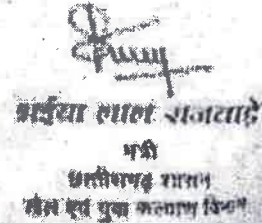 भईया लाल राजवाड़े
मंत्री
छत्तीसगढ़ शासन
खेल एवं युवा कल्याण विभाग